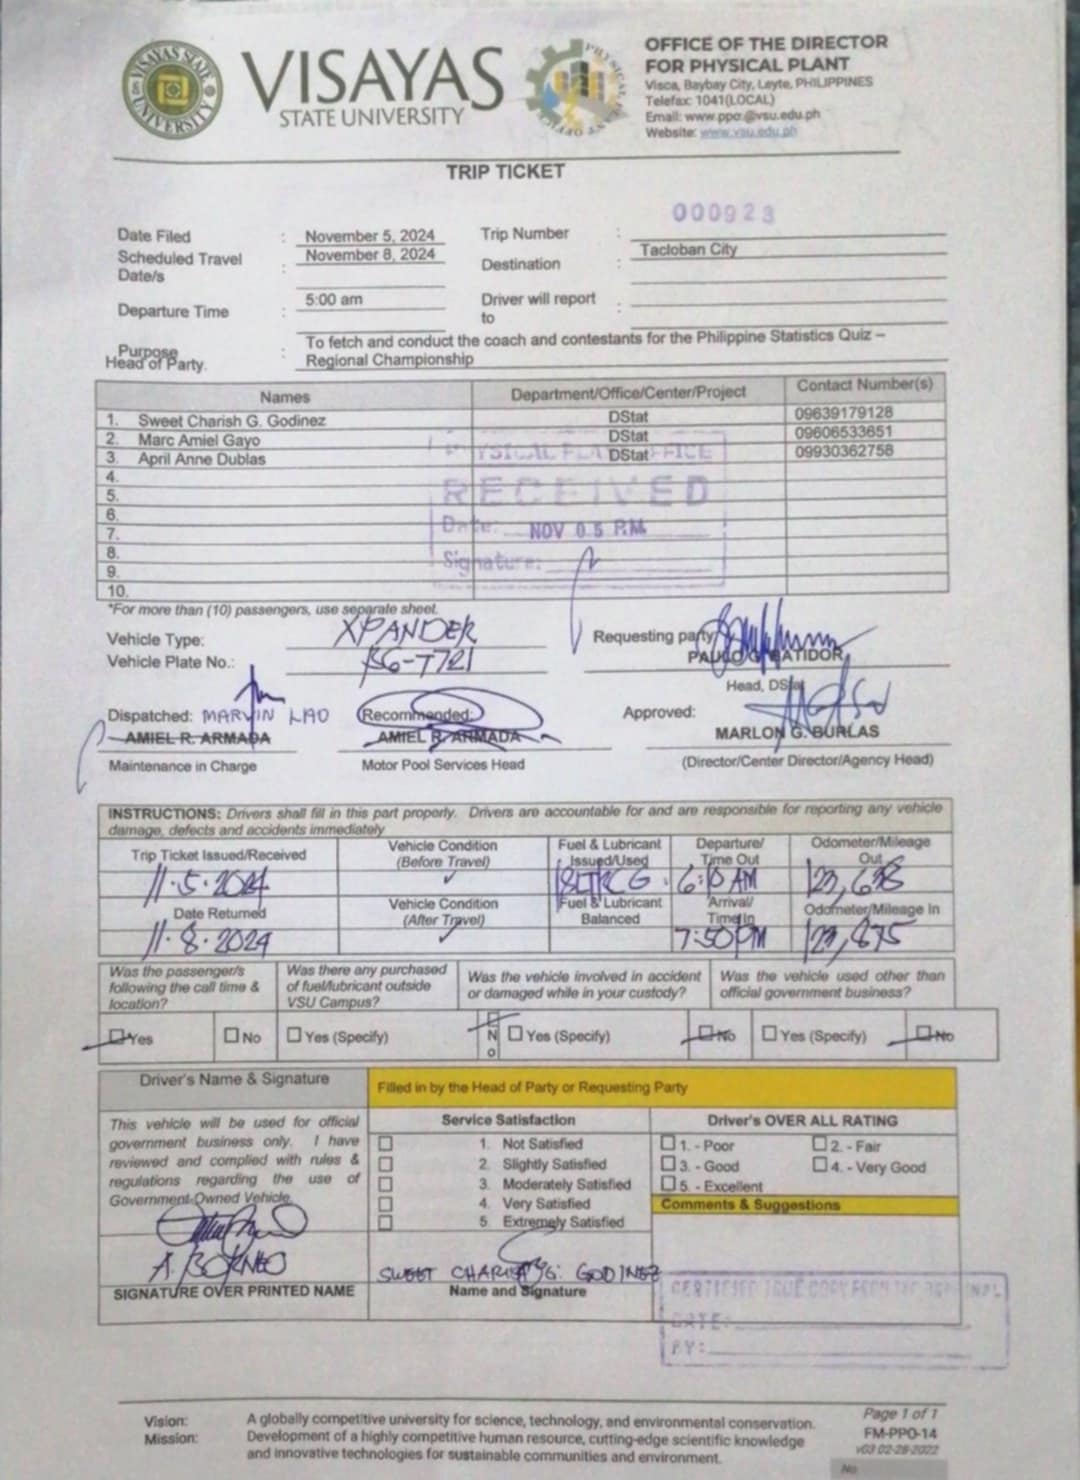 VISAYAS STATE UNIVERSITY
VISAYAS
STATE UNIVERSITY
OFFICE OF THE DIRECTOR
FOR PHYSICAL PLANT
Visca, Baybay City, Leyte, PHILIPPINES
Telefax: 1041(LOCAL)
Email: www.ppo@vsu.edu.ph
Website: www.vsu.edu.ph
TRIP TICKET
000923
Date Filed : November 5, 2024 Trip Number :
Scheduled Travel Date/s : November 8, 2024 Destination : Tacloban City
Departure Time : 5:00 am Driver will report to :
Purpose : To fetch and conduct the coach and contestants for the Philippine Statistics Quiz –
Head of Party. Regional Championship
Names Department/Office/Center/Project Contact Number(s)
1. Sweet Charish G. Godinez DStat 09639179128
2. Marc Amiel Gayo DStat 09606533651
3. April Anne Dublas DStat 09930362758
4.
5.
6.
7.
8.
9.
10.
PHYSICAL PLANT OFFICE
RECEIVED
Date: NOV 05 P.M.
Signature:
*For more than (10) passengers, use separate sheet.
Vehicle Type: XPANDER Requesting party
Vehicle Plate No.: PAULO G. BATIDOR
Head, DStat
Dispatched: MARVIN LAO Recommended: Approved:
AMIEL R. ARMADA AMIEL R. ARMADA MARLON G. BURLAS
Maintenance in Charge Motor Pool Services Head (Director/Center Director/Agency Head)
INSTRUCTIONS: Drivers shall fill in this part properly. Drivers are accountable for and are responsible for reporting any vehicle
damage, defects and accidents immediately
Trip Ticket Issued/Received Vehicle Condition (Before Travel) Fuel & Lubricant Issued/Used Departure/ Time Out Odometer/Mileage Out
11.5.2024 6:10 AM 123,638
Date Returned Vehicle Condition (After Travel) Fuel & Lubricant Balanced Arrival/ Time In Odometer/Mileage In
11.8.2024 7:50 PM 123,875
Was the passenger/s following the call time & location? Was there any purchased of fuel/lubricant outside VSU Campus? Was the vehicle involved in accident or damaged while in your custody? Was the vehicle used other than official government business?
Yes No Yes (Specify) No Yes (Specify) No Yes (Specify) No
Driver's Name & Signature Filled in by the Head of Party or Requesting Party
This vehicle will be used for official
government business only. I have
reviewed and complied with rules &
regulations regarding the use of
Government-Owned Vehicle.
Service Satisfaction
1. Not Satisfied
2. Slightly Satisfied
3. Moderately Satisfied
4. Very Satisfied
5. Extremely Satisfied
Driver's OVER ALL RATING
1. - Poor 2. - Fair
3. - Good 4. - Very Good
5. - Excellent
Comments & Suggestions
A. BORNEO SWEET CHARISH G. GODINEZ
SIGNATURE OVER PRINTED NAME Name and Signature
CERTIFIED TRUE COPY FROM THE ORIGINAL
DATE:
BY:
Vision: A globally competitive university for science, technology, and environmental conservation.
Mission: Development of a highly competitive human resource, cutting-edge scientific knowledge
and innovative technologies for sustainable communities and environment.
Page 1 of 1
FM-PPO-14
v03 02-28-2022
No